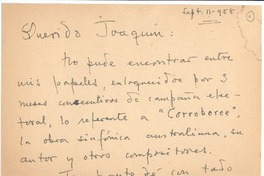 Sept. 11-958
1
Querido Joaquín:
No pude encontrar entre
mis papeles, enloquecidos por 3
meses consecutivos de campaña elec-
toral, lo referente a "Corroboree",
la obra sinfónica australiana, su
autor y otros compositores.
con todo